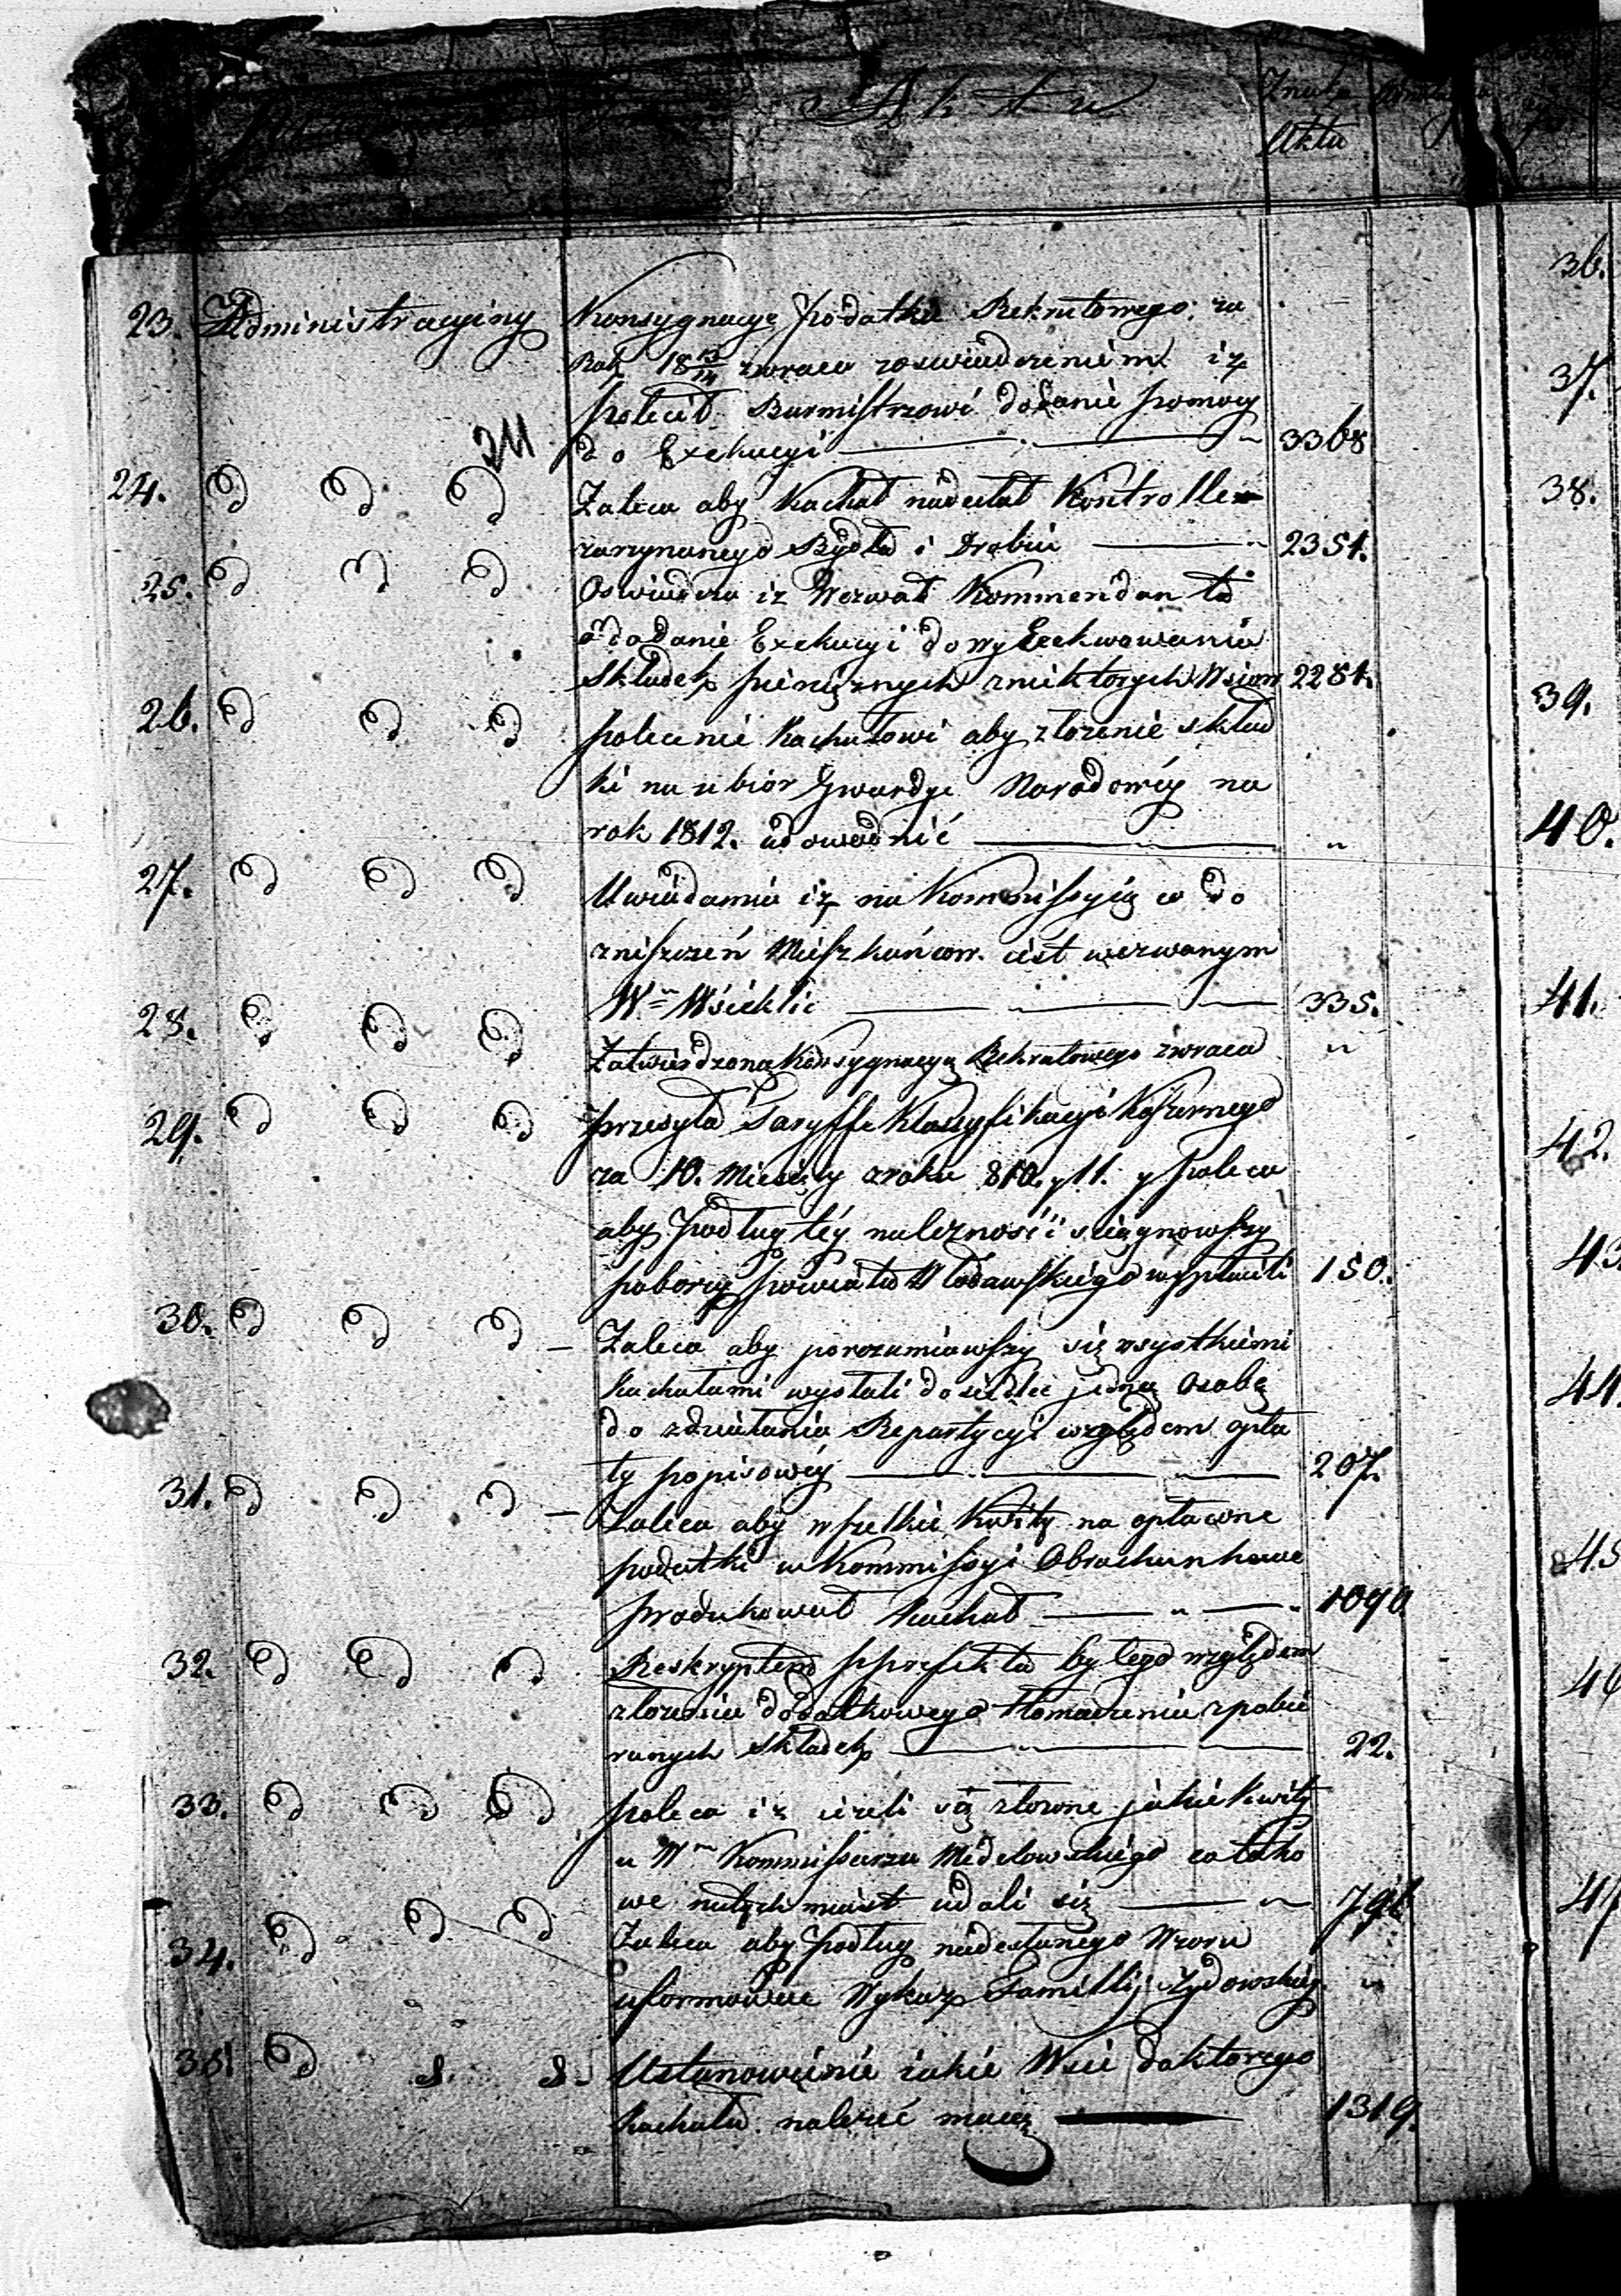 Aktu
Aktu
23. Administracyiny Konsygnacye podatku Rekrutowego za
Rok 18 13/14 zwraca zoswiadczeniem iż
polecił Burmistrzowi dodanie pomocy
do Exekucyi 3368
24. Zaleca aby Kachał nadesłał Kontrolle
zarzynanego Bydła i Drobiu 2351.
25. Oswiadcza iz Wezwał Kommendanta
o dodanie Exekucyi do wyExekwowania
Składek pieniężnych zniektorych Wsiow 2281.
26. polecenie Kachałowi aby złożenie skład
ki na ubior Gwardye Narodowéy na
rok 1812. udowodnić "
27. Uwiadamia iż na Kommissyią co do
zniszczeń Mieszkańcow iest wezwanym
Wn Wsieklic 335.
28. Zatwierdzoną Konsygnacyą Rekrutowego zwraca "
29. przesyła Taryffe Klassyfikacyi Koszernego
za 10. Miesięcy zroku 810. y 11. y poleca
aby podług téy należność sciągnowszy
poborcy powiatu Włodawskiego wypłacili 150.
30. Zaleca aby porozumiawszy się wsystkiemi
Kachałami wysłali do siedlec jedną Osobę
do zdziałania Repartycyi względem opła
ty popisowéy 207.
31. Zaleca aby wszelkie Kwity na opłacone
podatki w Kommissyi Obrachunkowe
produkował Kachał 1090
32. Reskryptem pprefekta byłego względem
złożenia dodatkowego tłomaczenia zpobie
ranych Składek 22.
33. poleca iz ieżeli są złożone jakie kwity
u Wm Kommissarza Medelowskiego za tako
we natychmiast udali się 796
34. Zaleca aby podług nadesłanego Wzoru
uformowac Wykaz Familli Żydowskiey "
35. d. d. Ustanowienie iakie Wsie do ktorego
Kachału należeć maią 1319.
211
36.
37.
38.
39.
40.
41.
42.
43
44.
45
46
47